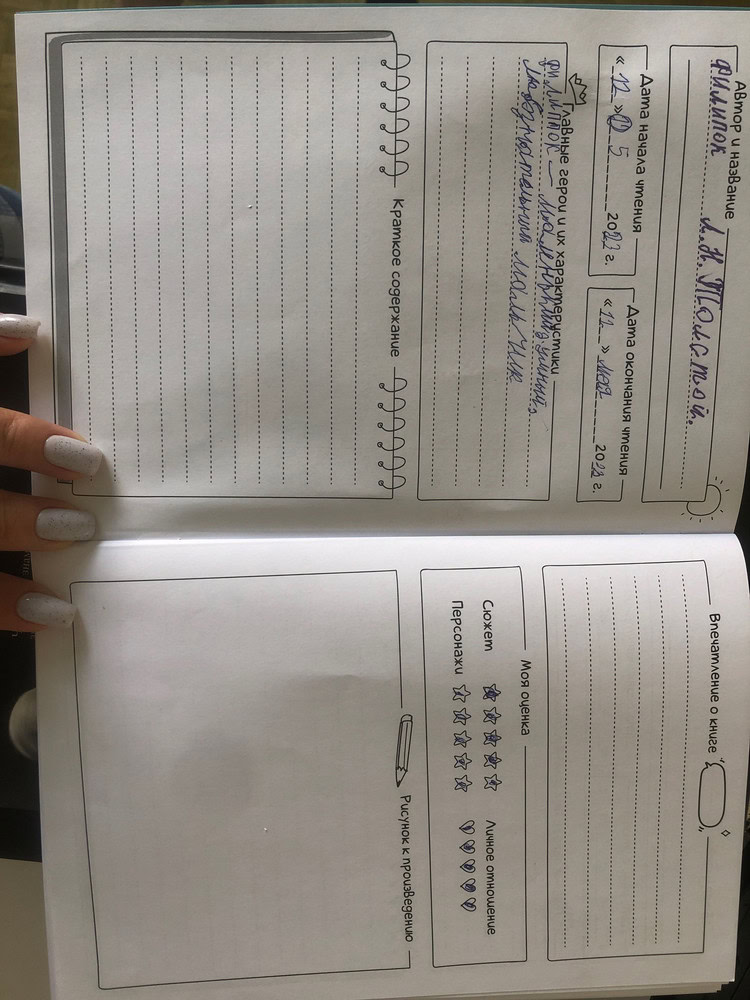 Автор и название
Филипок Л.Н. Толстой.
Дата начала чтения
« 12 » 5 2023 г.
Дата окончания чтения
« 12 » мая 2023 г.
Главные герои и их характеристики
Филипок – маленький, умный,
любознательный мальчик
Краткое содержание
Впечатление о книге
Моя оценка
Сюжет
Персонажи
Личное отношение
Рисунок к произведению